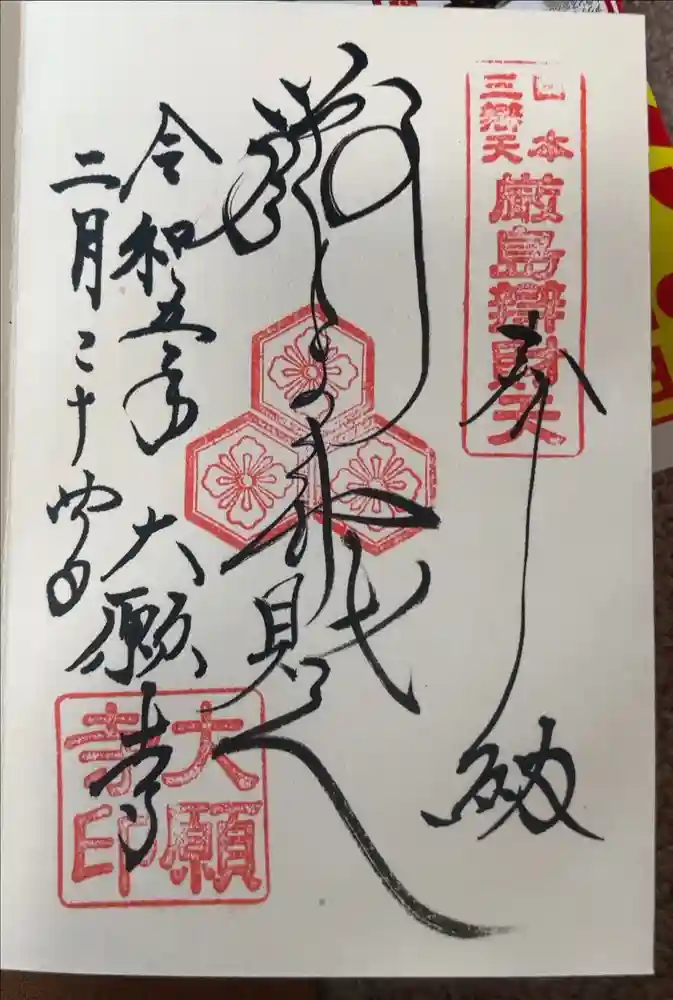 日本
三辨天
厳島辨財天
奉
令和五年
二月二十四日
大願寺
大願寺印